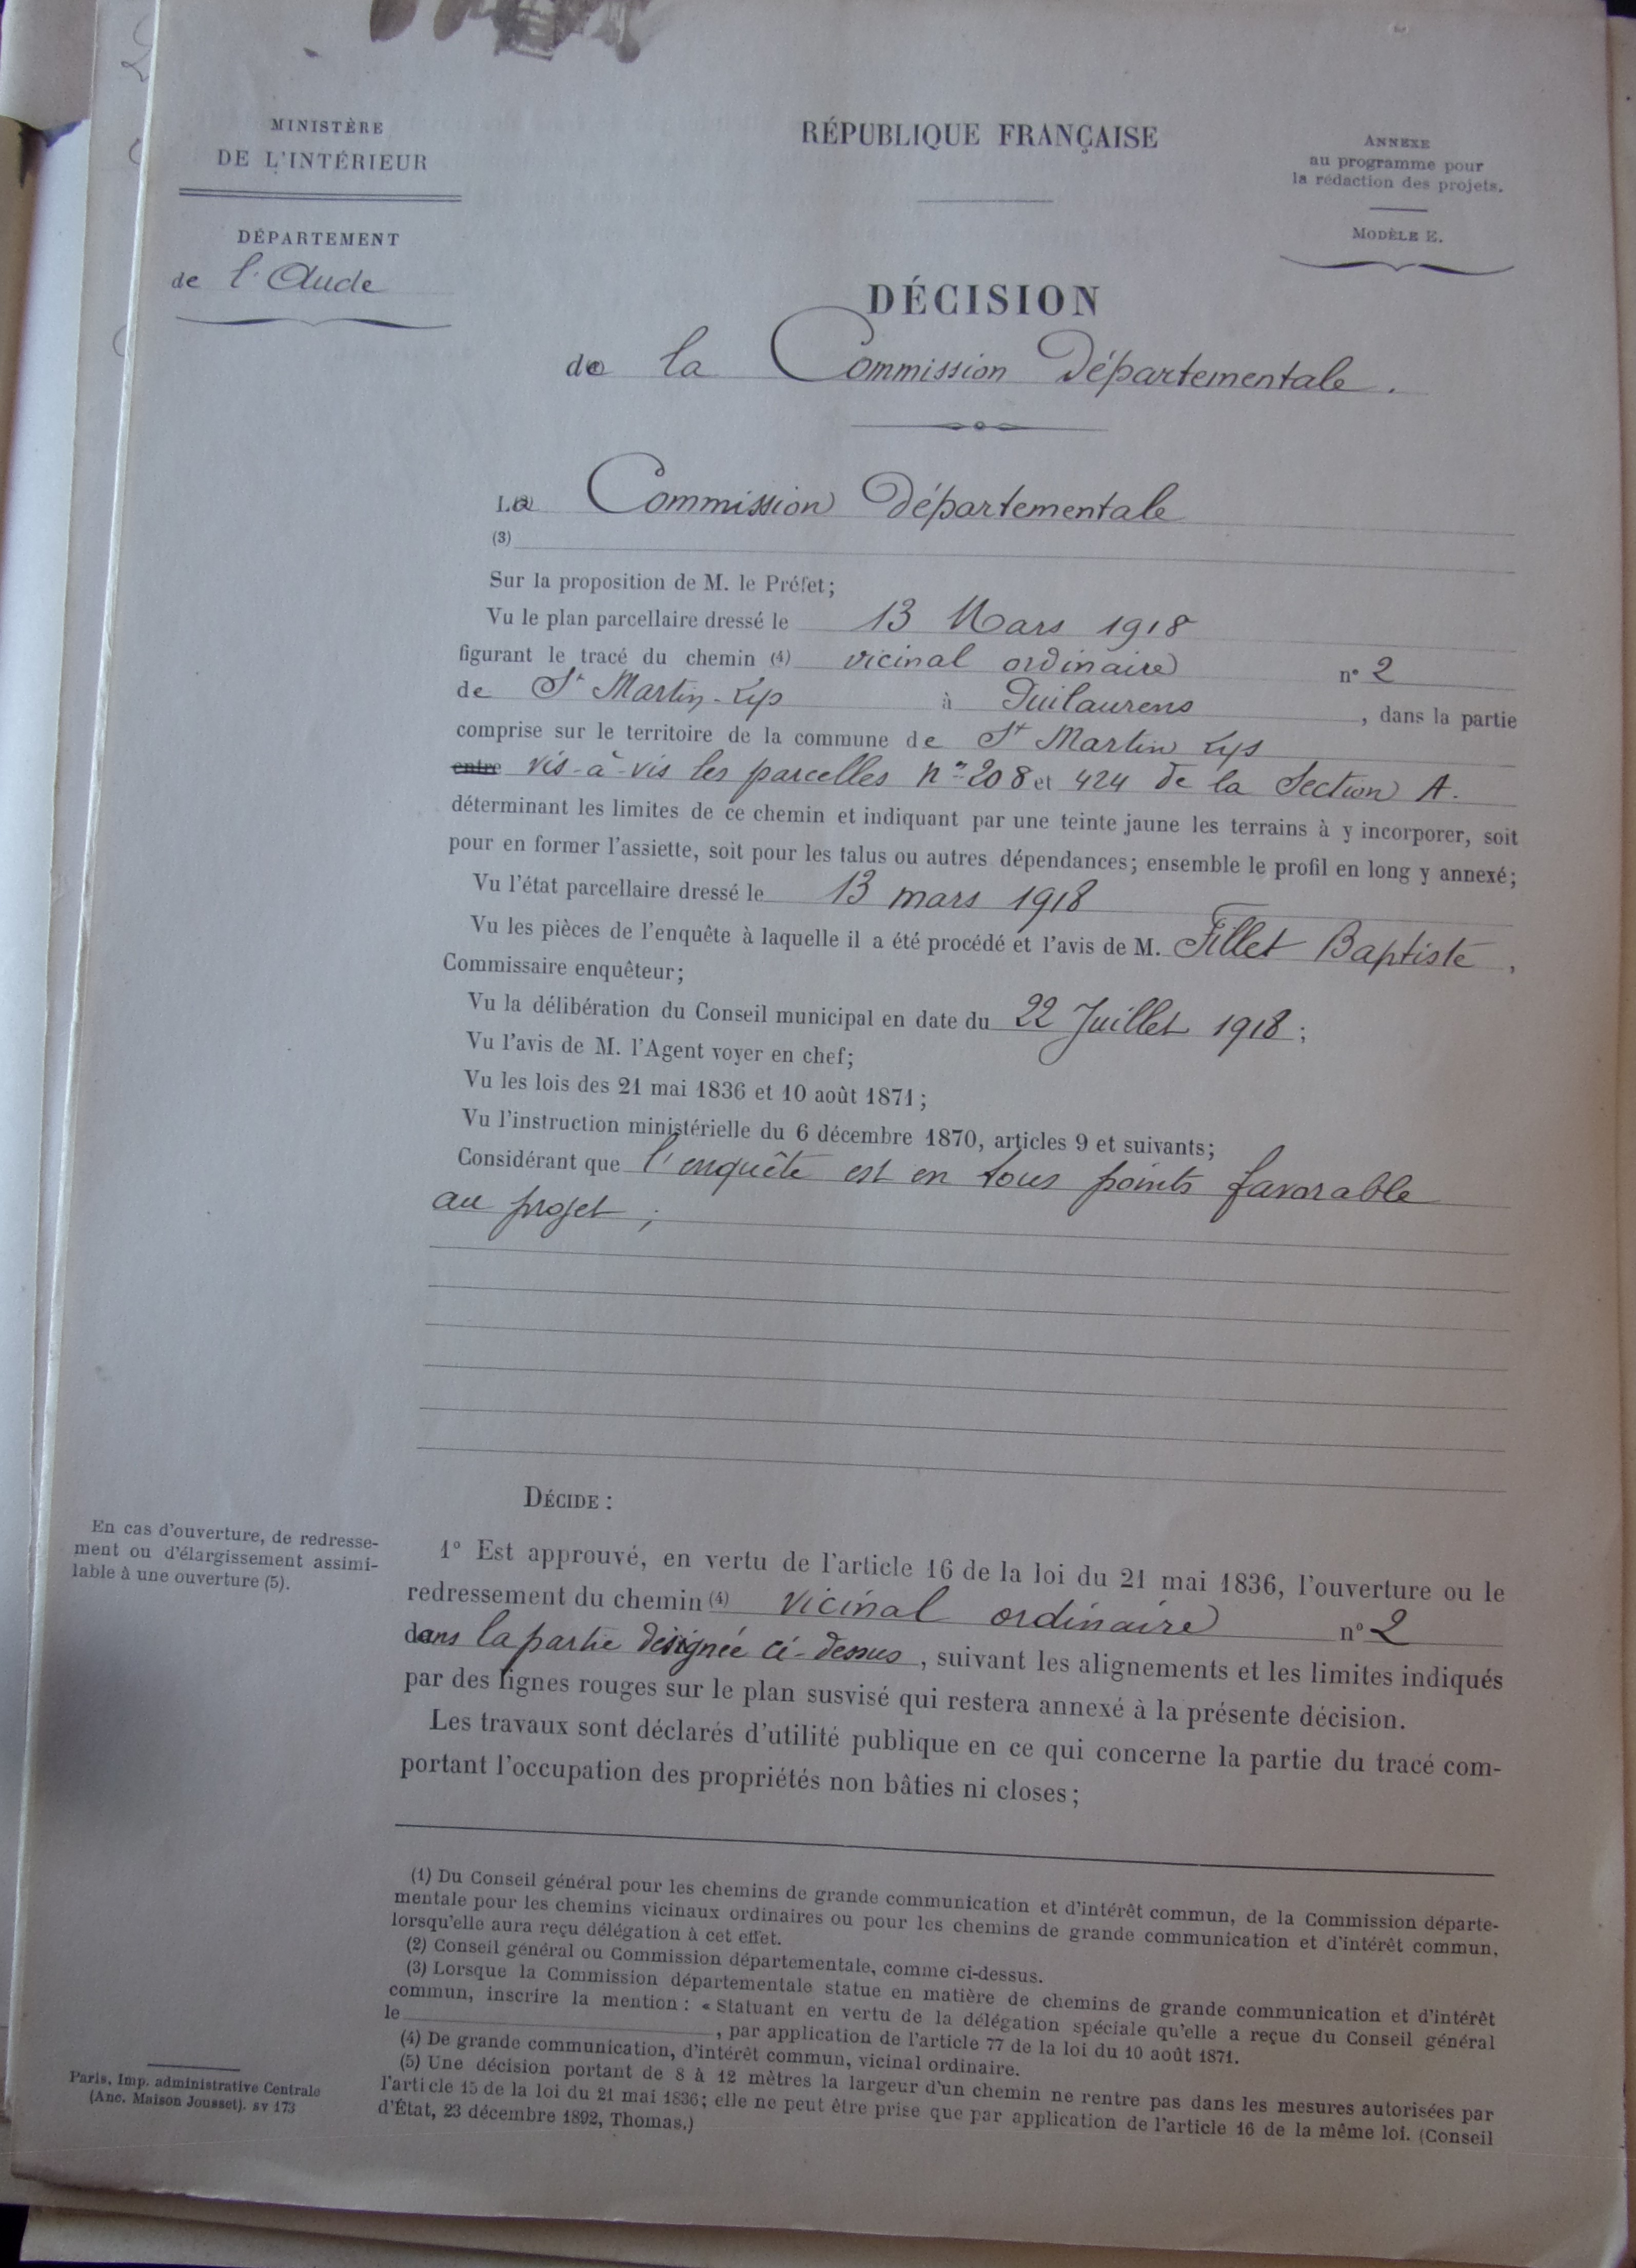 MINISTÈRE
DE L'INTÉRIEUR
DÉPARTEMENT
de l'Aude
RÉPUBLIQUE FRANÇAISE
ANNEXE
au programme pour
la rédaction des projets.
MODÈLE E.
DÉCISION
de la Commission Départementale.
La Commission Départementale
(3)
Sur la proposition de M. le Préfet;
Vu le plan parcellaire dressé le 13 Mars 1918
figurant le tracé du chemin (4) vicinal ordinaire n° 2
de St Martin-Lys à Puilaurens, dans la partie
comprise sur le territoire de la commune de St Martin Lys
entre vis-à-vis les parcelles nos 208 et 424 de la Section A.
déterminant les limites de ce chemin et indiquant par une teinte jaune les terrains à y incorporer, soit
pour en former l'assiette, soit pour les talus ou autres dépendances; ensemble le profil en long y annexé;
Vu l'état parcellaire dressé le 13 mars 1918
Vu les pièces de l'enquête à laquelle il a été procédé et l'avis de M. Fillet Baptiste,
Commissaire enquêteur;
Vu la délibération du Conseil municipal en date du 22 Juillet 1918;
Vu l'avis de M. l'Agent voyer en chef;
Vu les lois des 21 mai 1836 et 10 août 1871;
Vu l'instruction ministérielle du 6 décembre 1870, articles 9 et suivants;
Considérant que l'enquête est en tous points favorable
au projet;
DÉCIDE :
En cas d'ouverture, de redresse-
ment ou d'élargissement assimi-
lable à une ouverture (5).
1° Est approuvé, en vertu de l'article 16 de la loi du 21 mai 1836, l'ouverture ou le
redressement du chemin (4) vicinal ordinaire n° 2
dans la partie désignée ci-dessus, suivant les alignements et les limites indiqués
par des lignes rouges sur le plan susvisé qui restera annexé à la présente décision.
Les travaux sont déclarés d'utilité publique en ce qui concerne la partie du tracé com-
portant l'occupation des propriétés non bâties ni closes;
(1) Du Conseil général pour les chemins de grande communication et d'intérêt commun, de la Commission départe-
mentale pour les chemins vicinaux ordinaires ou pour les chemins de grande communication et d'intérêt commun,
lorsqu'elle aura reçu délégation à cet effet.
(2) Conseil général ou Commission départementale, comme ci-dessus.
(3) Lorsque la Commission départementale statue en matière de chemins de grande communication et d'intérêt
commun, inscrire la mention : « Statuant en vertu de la délégation spéciale qu'elle a reçue du Conseil général
le , par application de l'article 77 de la loi du 10 août 1871.
(4) De grande communication, d'intérêt commun, vicinal ordinaire.
(5) Une décision portant de 8 à 12 mètres la largeur d'un chemin ne rentre pas dans les mesures autorisées par
l'article 15 de la loi du 21 mai 1836; elle ne peut être prise que par application de l'article 16 de la même loi. (Conseil
d'État, 23 décembre 1892, Thomas.)
Paris, Imp. administrative Centrale
(Anc. Maison Jousset). SV 173